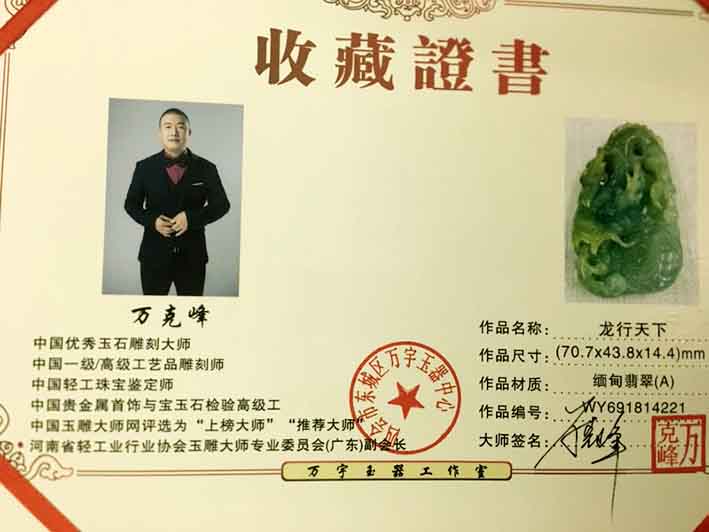 收藏證書
万克峰
中国优秀玉石雕刻大师
中国一级/高级工艺品雕刻师
中国轻工珠宝鉴定师
中国贵金属首饰与宝玉石检验高级工
中国玉雕大师网评选为“上榜大师”“推荐大师”
*河南省轻工业行业协会玉雕大师专业委员会(广东)副会长
作品名称: 龙行天下
作品尺寸: (70.7x43.8x14.4)mm
作品材质: 缅甸翡翠(A)
作品编号: WY691814221
大师签名:
万克峰
会市东城区万宇玉器中心
万宇玉器工作室